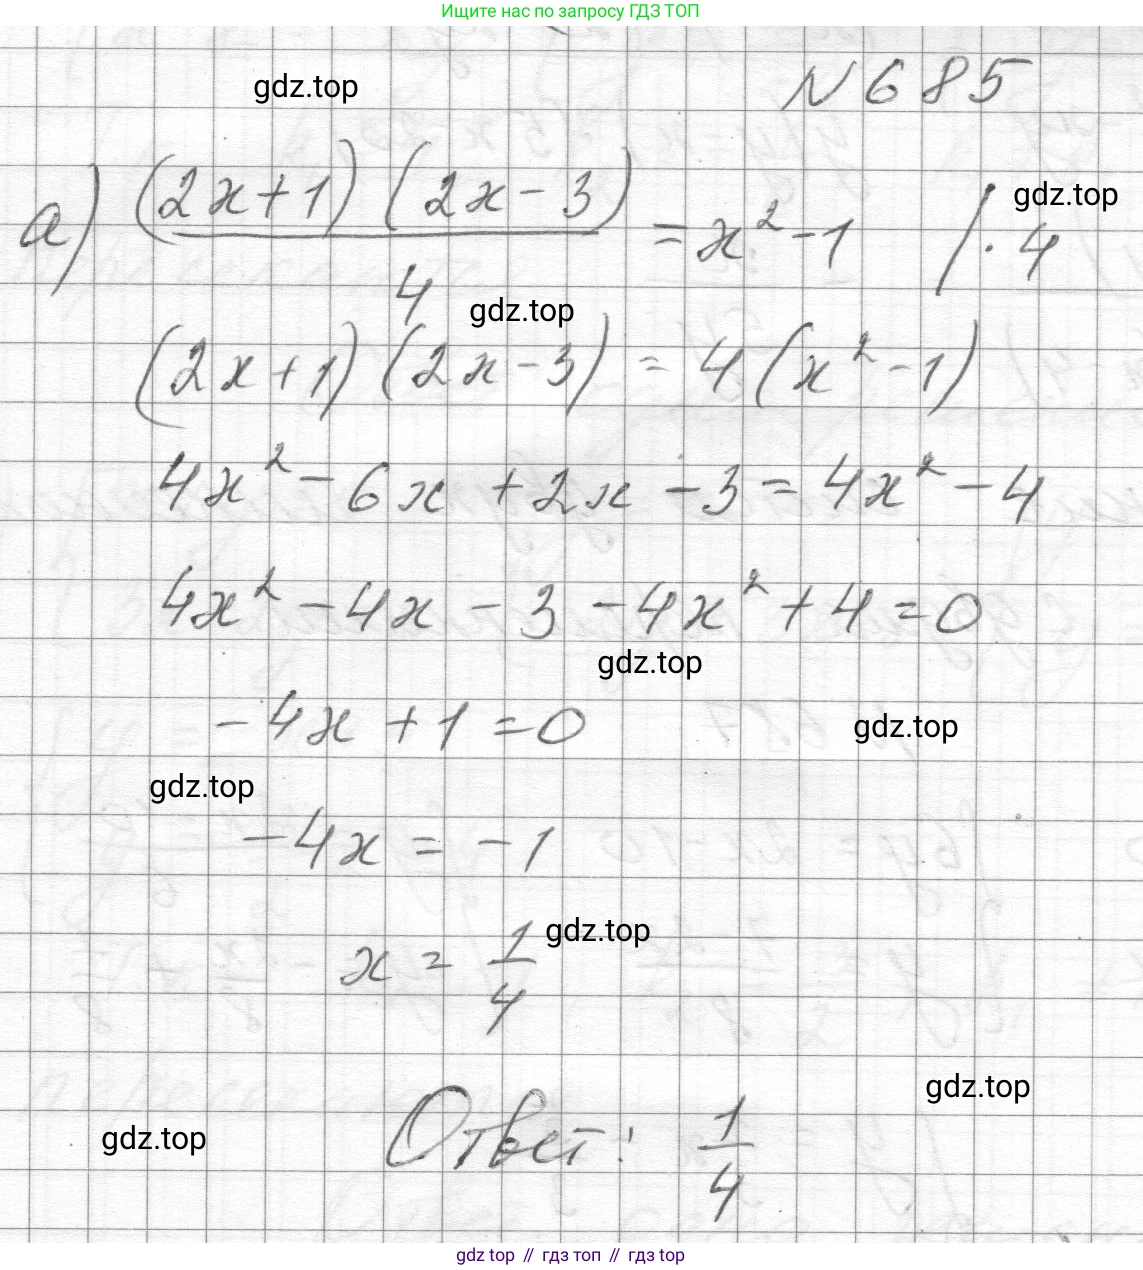 Ищите нас по запросу ГДЗ ТОП
gdz.top
N 685
а) (2x+1)(2x-3)/4 = x²-1 /·4
gdz.top
gdz.top
(2x+1)(2x-3) = 4(x²-1)
4x²-6x+2x-3=4x²-4
4x²-4x-3-4x²+4=0
gdz.top
-4x+1=0
gdz.top
gdz.top
-4x=-1
gdz.top
x=1/4
gdz.top
Ответ: 1/4
gdz.top
gdz.top // гдз топ // гдз top